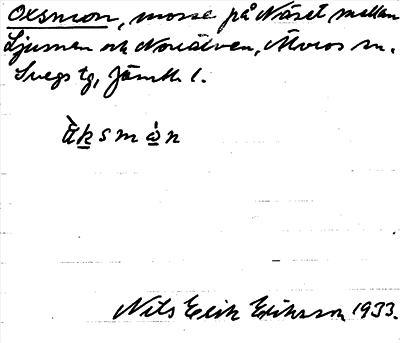 Oxsmon, mosse på Näset mellan
Ljusnan och Noraälven, Älvros sn.
Svegs tg, Jämtl. l.
Nils Erik Eriksson 1933.